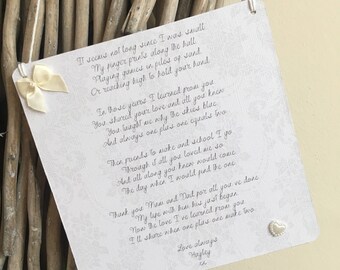 It seems not long since I was small
My finger prints along the hall
Playing games in piles of sand
Or reaching high to hold your hand
In those years I learned from you
You shared your love and all you knew
You taught me why the skies blue
And always one plus one equals two
Then friends to make and school I go
Through it all you loved me so
And all along you knew would come
The day when I would find the one
Thank you Mum and Dad for all you've done
My life with him has just begun
Now the love I've learned from you
I'll share when one plus one make two
Love always
Hayley
xx